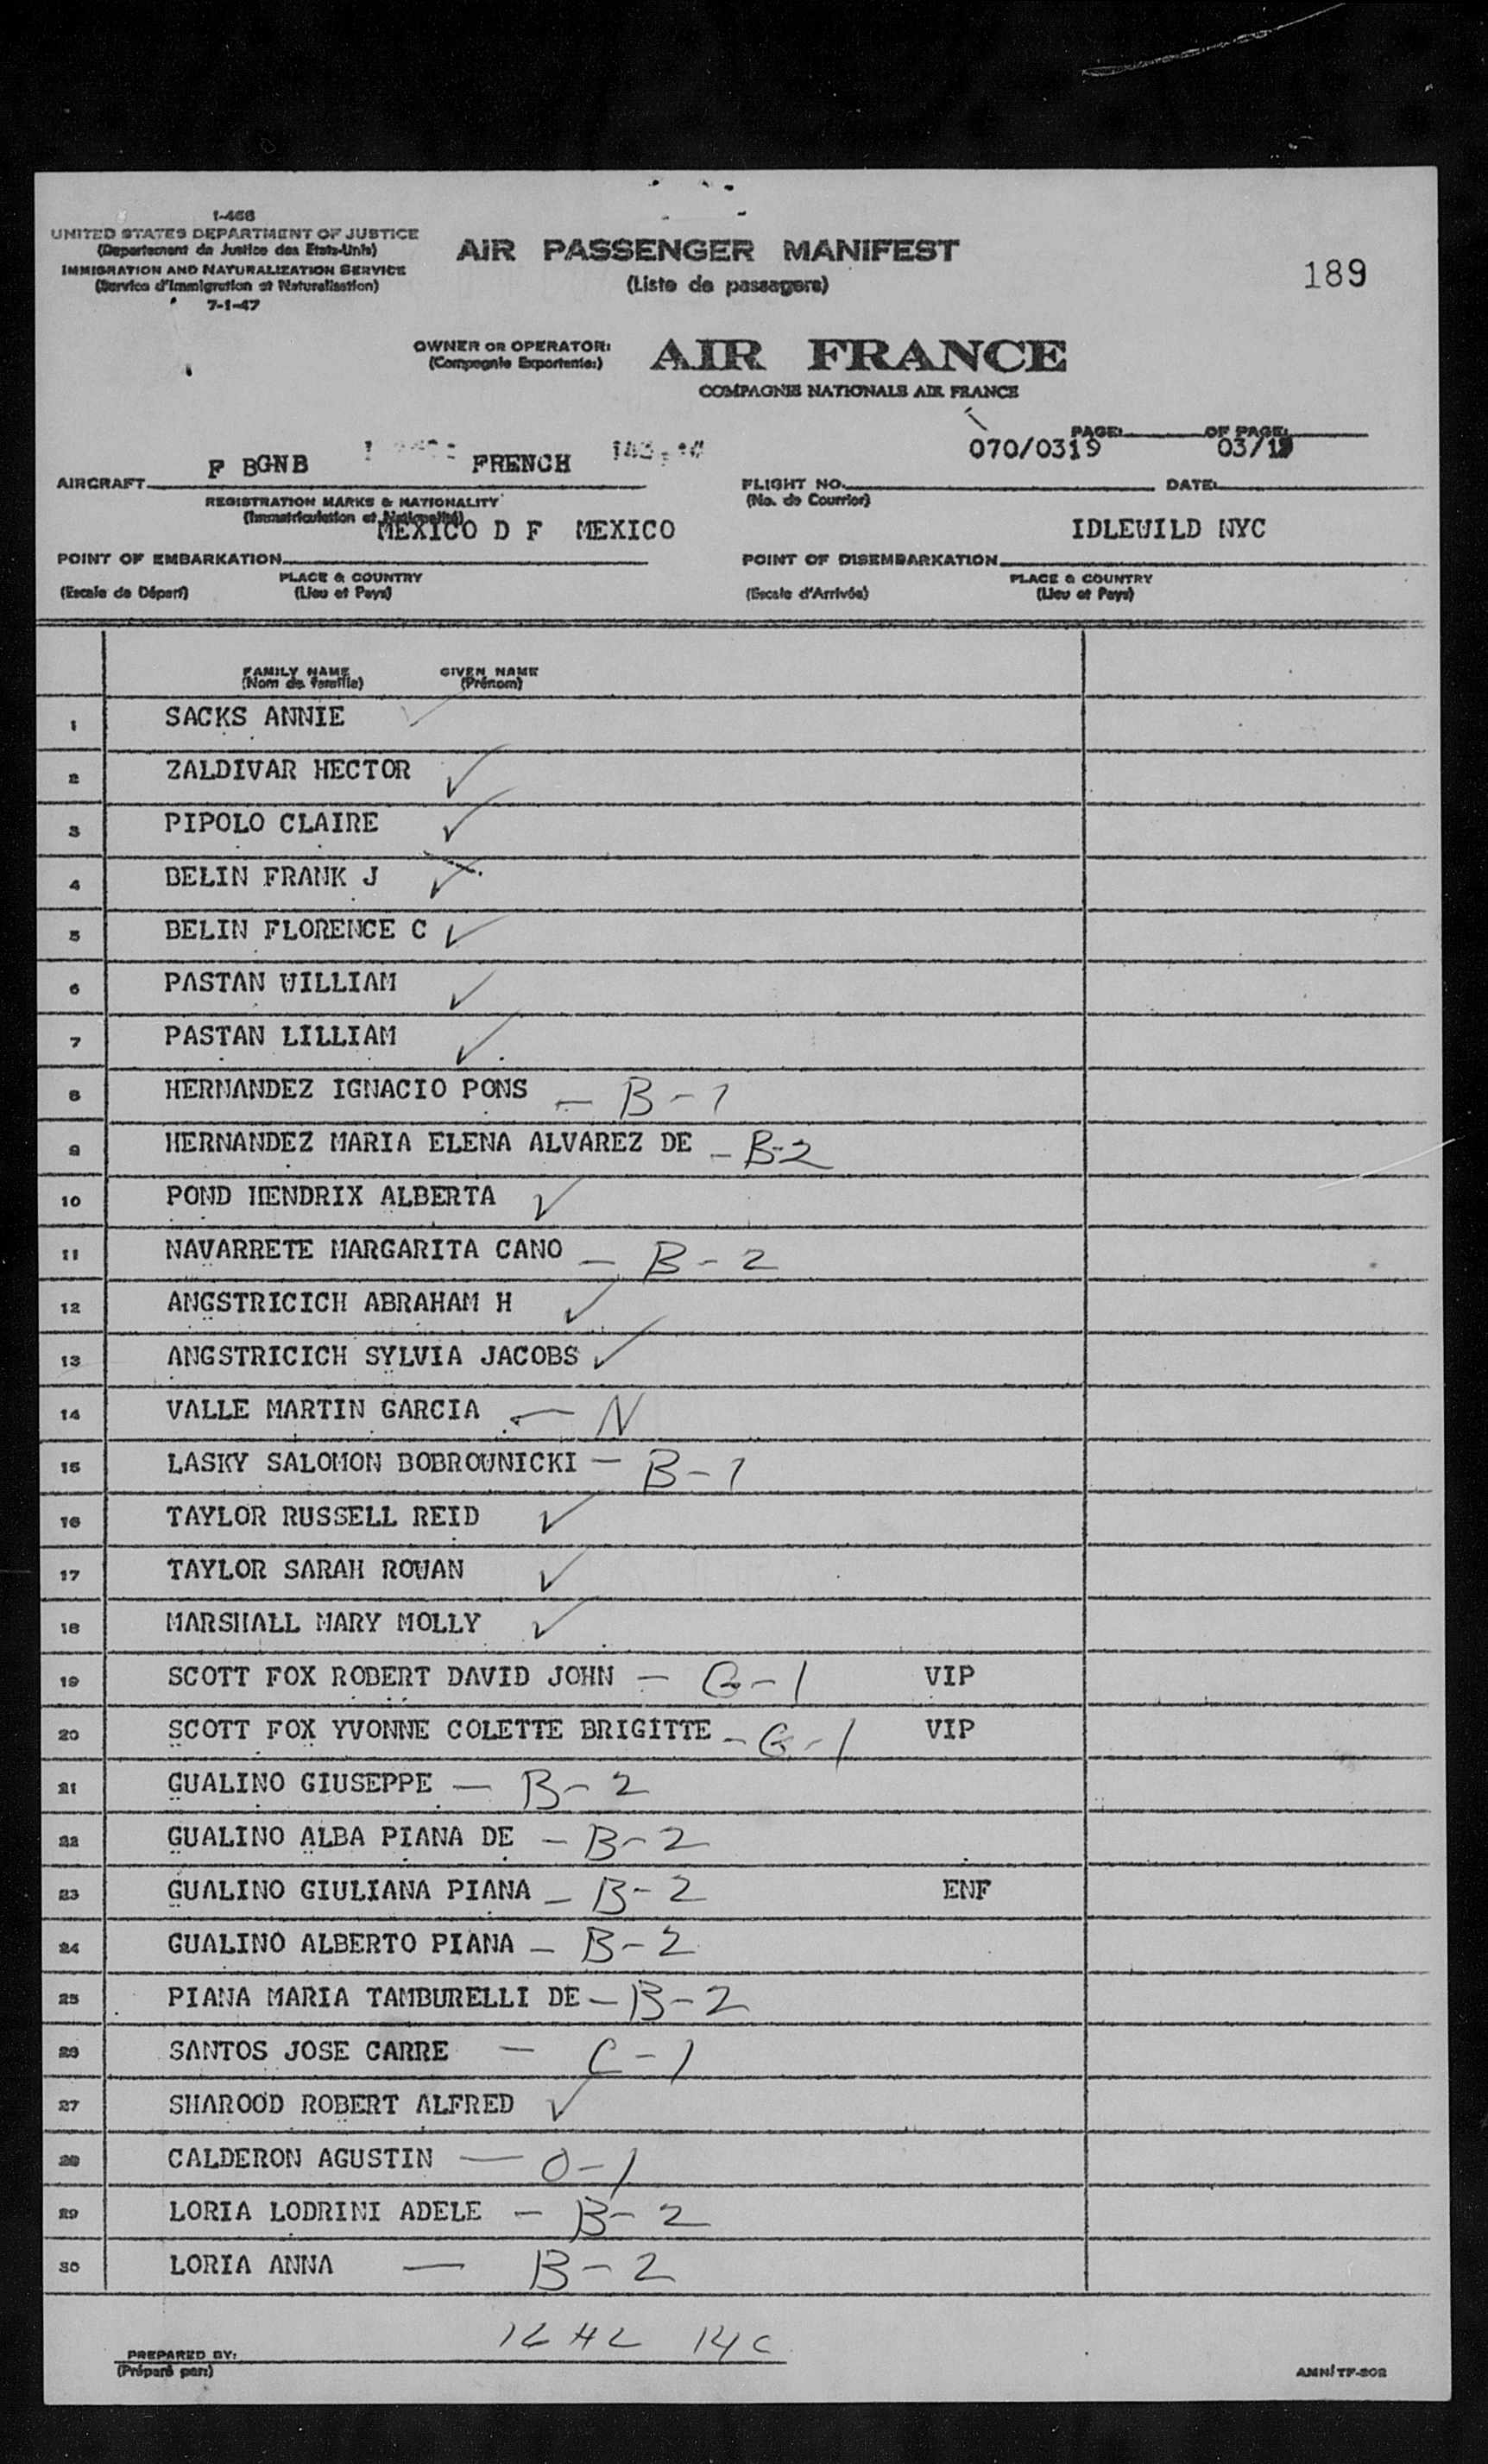 I-466
UNITED STATES DEPARTMENT OF JUSTICE
(Departement de Justice des Etats-Unis)
IMMIGRATION AND NATURALIZATION SERVICE
(Service d'Immigration et Naturalisation)
7-1-47
AIR PASSENGER MANIFEST
(Liste de passagers)
189
OWNER OR OPERATOR: AIR FRANCE
(Compagnie Exportente:)
COMPAGNIE NATIONALE AIR FRANCE
PAGE: OF PAGE:
070/0319 03/19
F BGNB FRENCH
AIRCRAFT FLIGHT NO. DATE:
REGISTRATION MARKS & NATIONALITY (No. de Courrier)
(Immatriculation et Nationalité)
MEXICO D F MEXICO IDLEWILD NYC
POINT OF EMBARKATION POINT OF DISEMBARKATION
PLACE & COUNTRY PLACE & COUNTRY
(Escale de Départ) (Lieu et Pays) (Escale d'Arrivée) (Lieu et Pays)
FAMILY NAME GIVEN NAME
(Nom de famille) (Prénom)
1 SACKS ANNIE ✓
2 ZALDIVAR HECTOR ✓
3 PIPOLO CLAIRE ✓
4 BELIN FRANK J ✓
5 BELIN FLORENCE C ✓
6 PASTAN WILLIAM ✓
7 PASTAN LILLIAM ✓
8 HERNANDEZ IGNACIO PONS – B-1
9 HERNANDEZ MARIA ELENA ALVAREZ DE – B-2
10 POND HENDRIX ALBERTA ✓
11 NAVARRETE MARGARITA CANO – B-2
12 ANGSTRICICH ABRAHAM H ✓
13 ANGSTRICICH SYLVIA JACOBS ✓
14 VALLE MARTIN GARCIA – N
15 LASKY SALOMON BOBROWNICKI – B-1
16 TAYLOR RUSSELL REID ✓
17 TAYLOR SARAH ROWAN ✓
18 MARSHALL MARY MOLLY ✓
19 SCOTT FOX ROBERT DAVID JOHN – G-1 VIP
20 SCOTT FOX YVONNE COLETTE BRIGITTE – G-1 VIP
21 GUALINO GIUSEPPE – B-2
22 GUALINO ALBA PIANA DE – B-2
23 GUALINO GIULIANA PIANA – B-2 ENF
24 GUALINO ALBERTO PIANA – B-2
25 PIANA MARIA TAMBURELLI DE – B-2
26 SANTOS JOSE CARRE – C-1
27 SHAROOD ROBERT ALFRED ✓
28 CALDERON AGUSTIN – O-1
29 LORIA LODRINI ADELE – B-2
30 LORIA ANNA – B-2
14C
PREPARED BY:
(Préparé par:)
AMN/TF-202